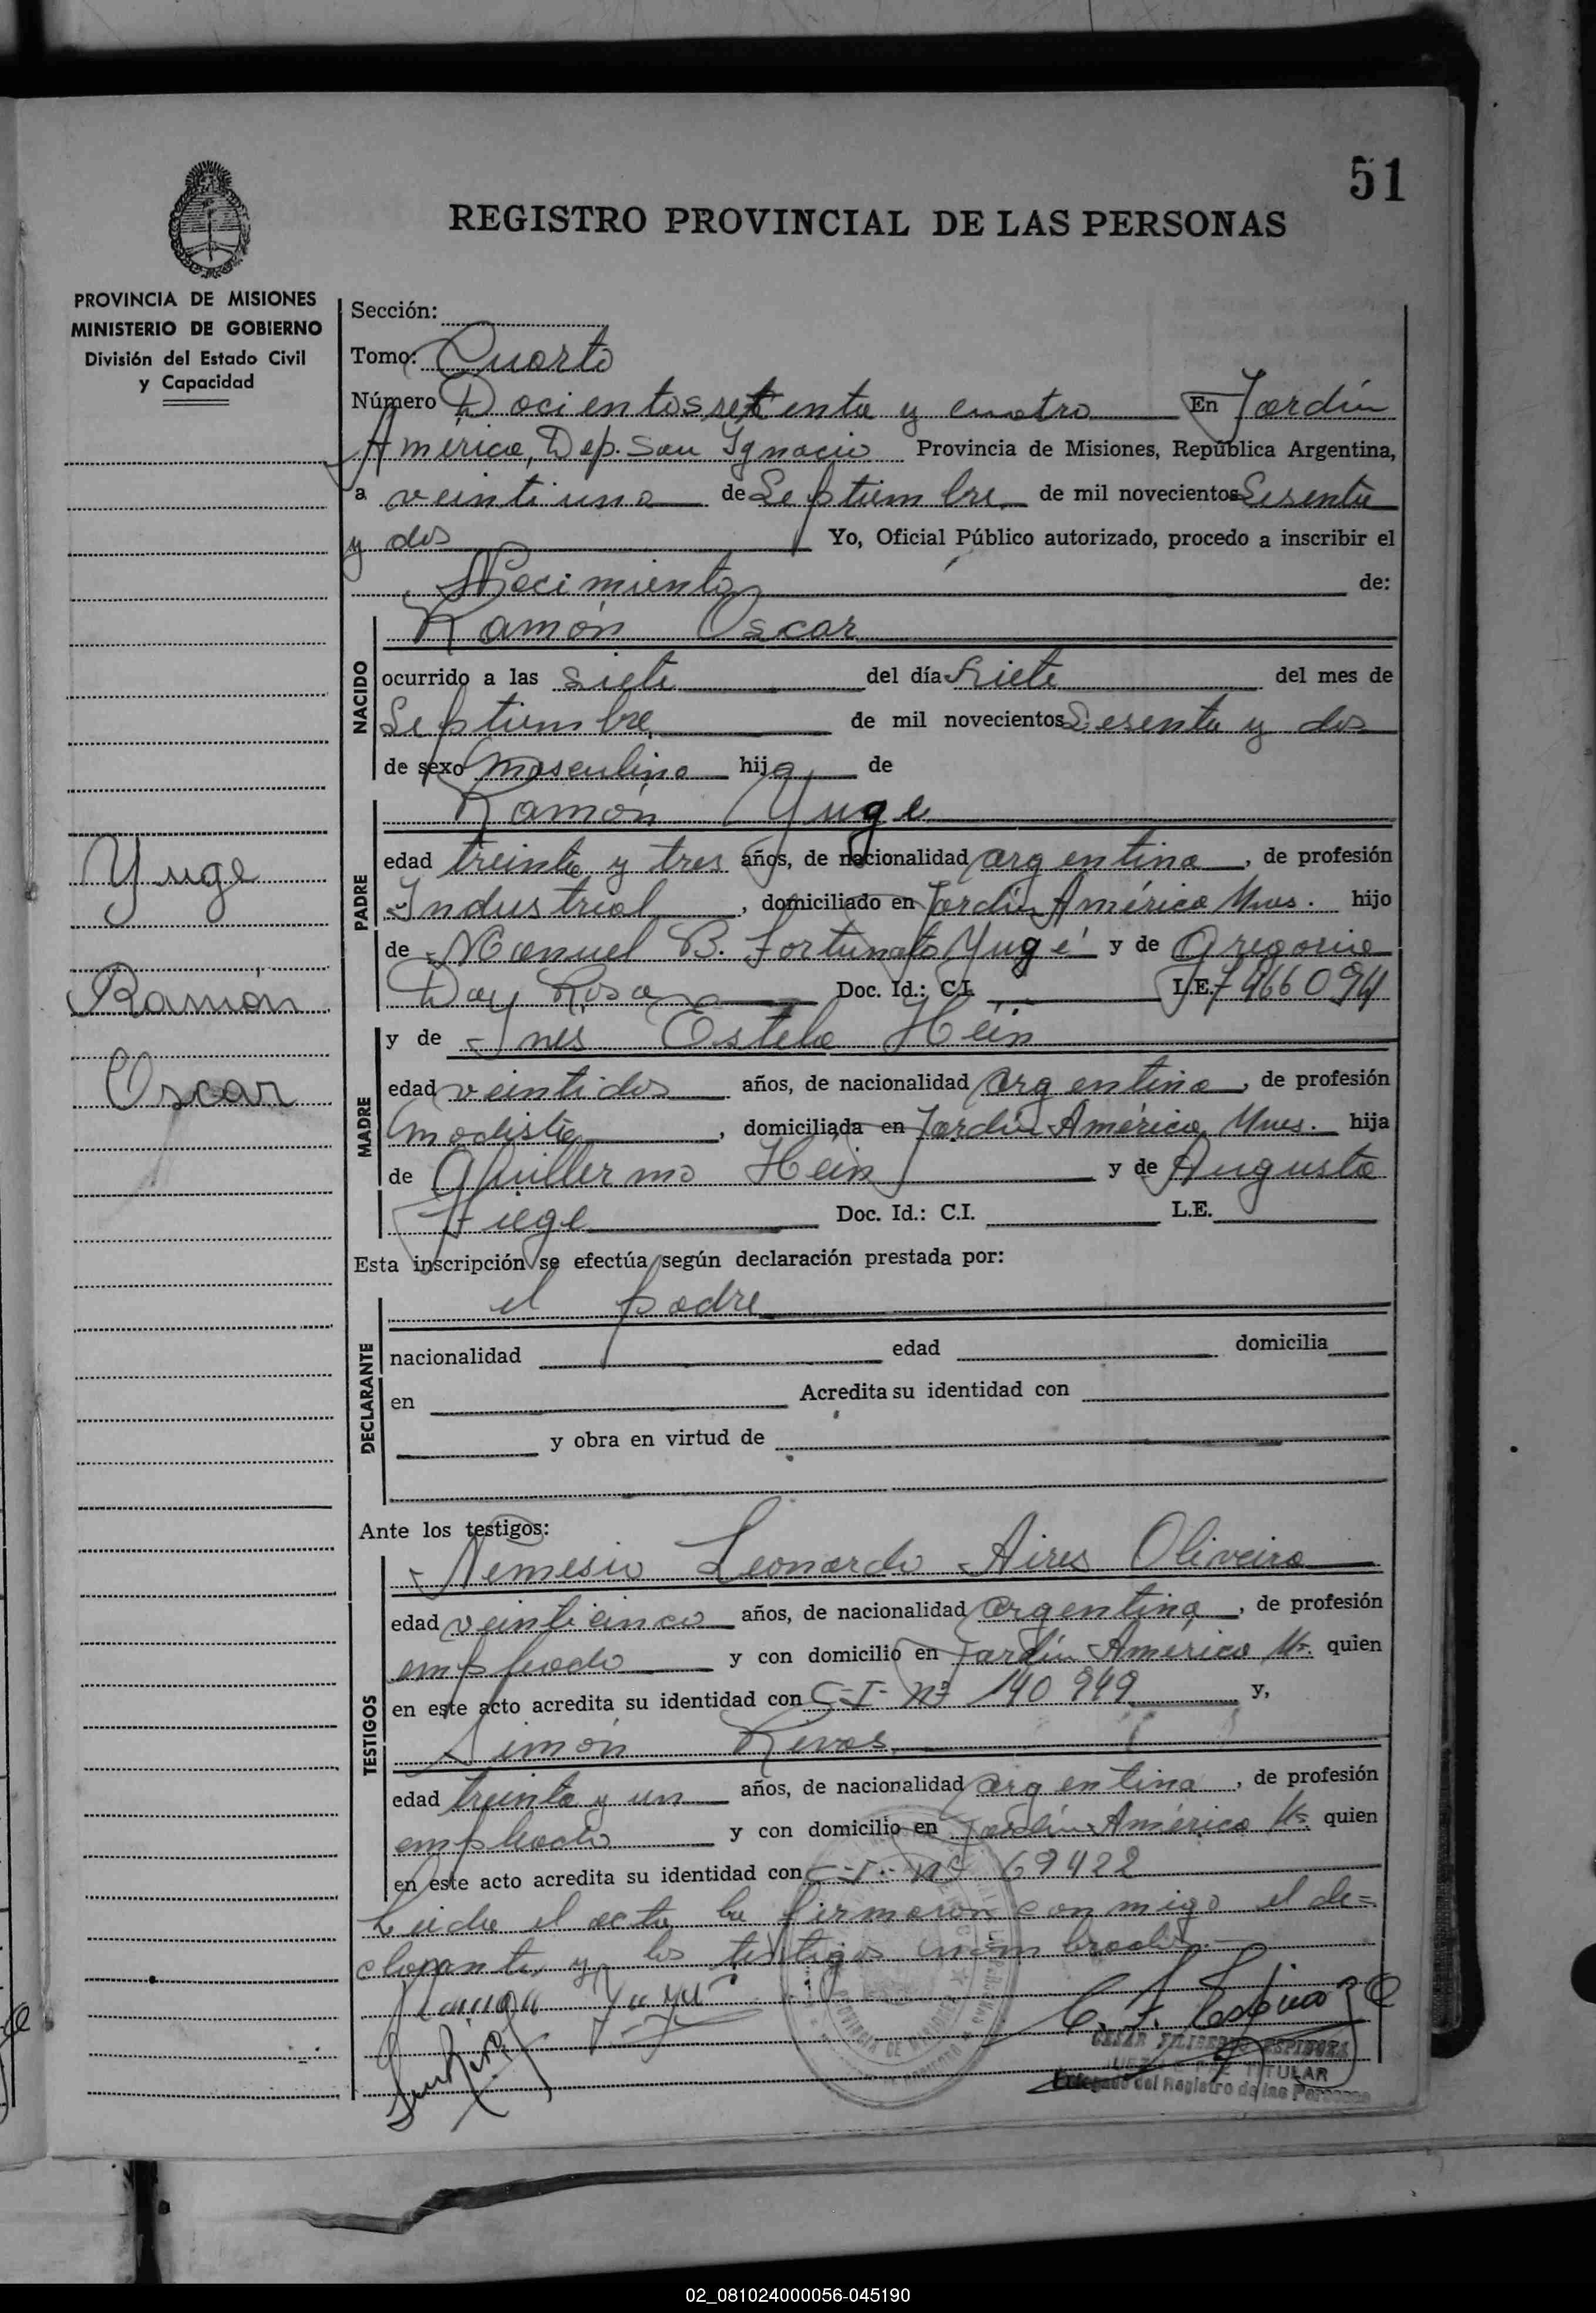 51
REGISTRO PROVINCIAL DE LAS PERSONAS
PROVINCIA DE MISIONES
MINISTERIO DE GOBIERNO
División del Estado Civil
y Capacidad
Yuge
Ramón
Oscar
Sección:
Tomo: Cuarto
Número Docientos setenta y cuatro En Jardín
América, Dep. San Ignacio Provincia de Misiones, República Argentina,
a veintiuno de Septiembre de mil novecientos Sesenta
y dos Yo, Oficial Público autorizado, procedo a inscribir el
Nacimiento de:
NACIDO
Ramón Oscar
ocurrido a las siete del día Siete del mes de
Septiembre de mil novecientos Sesenta y dos
de sexo masculino hijo de
PADRE
Ramón Yuge
edad treinta y tres años, de nacionalidad argentina, de profesión
Industrial, domiciliado en Jardín América Mnes. hijo
de Manuel B. Fortunato Yuge y de Gregoria
Day Rosa Doc. Id.: C.I. L.E. 7466094
MADRE
y de Ines Estela Héin
edad veintidos años, de nacionalidad argentina, de profesión
modista, domiciliada en Jardín América Mnes. hija
de Guillermo Hein y de Augusta
Fiege Doc. Id.: C.I. L.E.
Esta inscripción se efectúa según declaración prestada por:
DECLARANTE
el padre
nacionalidad edad domicilia
en Acredita su identidad con
y obra en virtud de
Ante los testigos:
TESTIGOS
Nemesio Leonardo Aires Oliveira
edad veinticinco años, de nacionalidad argentina, de profesión
empleado y con domicilio en Jardín América Ms. quien
en este acto acredita su identidad con C-I- Nº 140 949 y,
Simón Rivas
edad treinta y un años, de nacionalidad argentina, de profesión
empleado y con domicilio en Jardín América Ms. quien
en este acto acredita su identidad con C-I- Nº 69422
Leida el acta la firmaron conmigo el de=
clarante y los testigos nombrados.-
C. F. Espinoza
CESAR FILIBERTO ESPINOZA
TITULAR
Delegado del Registro de las Personas
PROVINCIA DE MISIONES
02_081024000056-045190